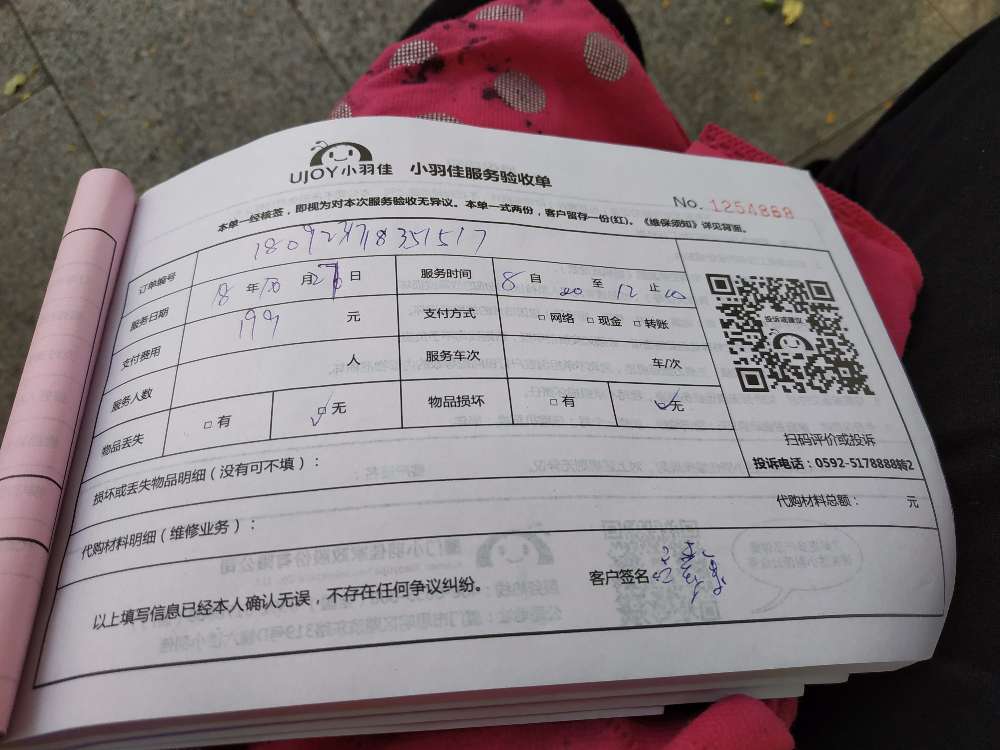 UJOY小羽佳 小羽佳服务验收单
No. 1254868
本单一经核签，即视为对本次服务验收无异议。本单一式两份，客户留存一份(红)。《维保须知》详见背面。
订单编号
服务日期 18 年 10 月 日 服务时间 8 自 00 至 12 止 00
支付费用 199 元 支付方式 □ 网络 □ 现金 □ 转账
服务人数 人 服务车次 车/次
物品丢失 □ 有 □ 无 物品损坏 □ 有 □ 无
投诉或建议
扫码评价或投诉
投诉电话：0592-5178888转2
损坏或丢失物品明细（没有可不填）：
代购材料明细（维修业务）： 代购材料总额： 元
以上填写信息已经本人确认无误，不存在任何争议纠纷。 客户签名：